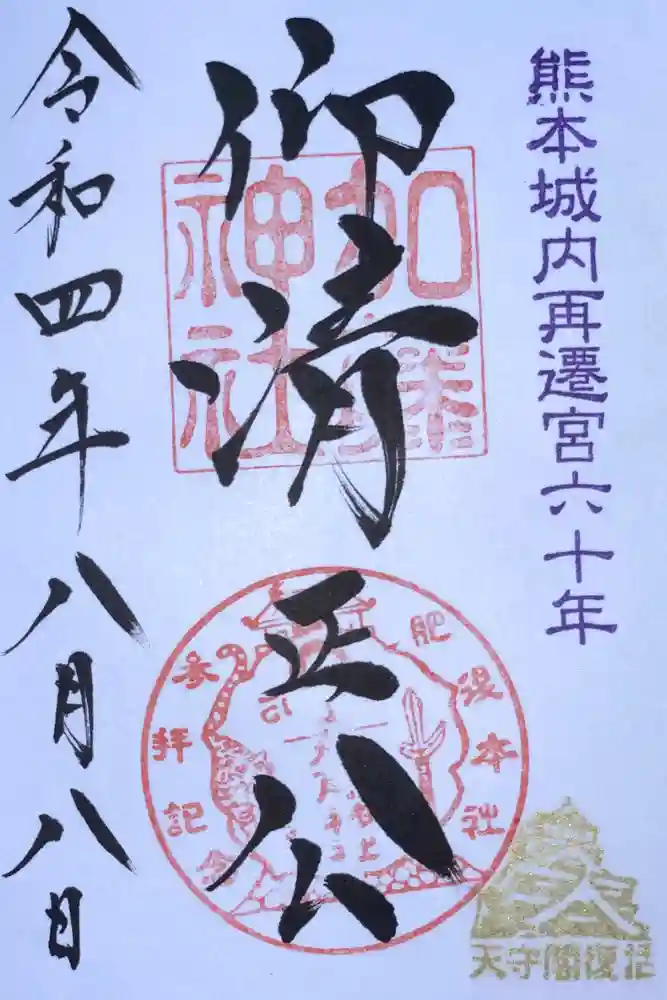 熊本城内再遷宮六十年
仰清正公
加藤
神社
肥後本社
参拝記念
令和四年八月八日
天守閣復活